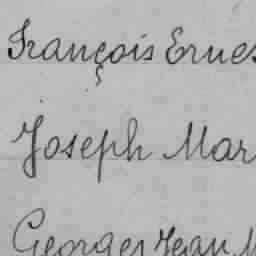 François Ernes
Joseph Mar
Georges Jean M